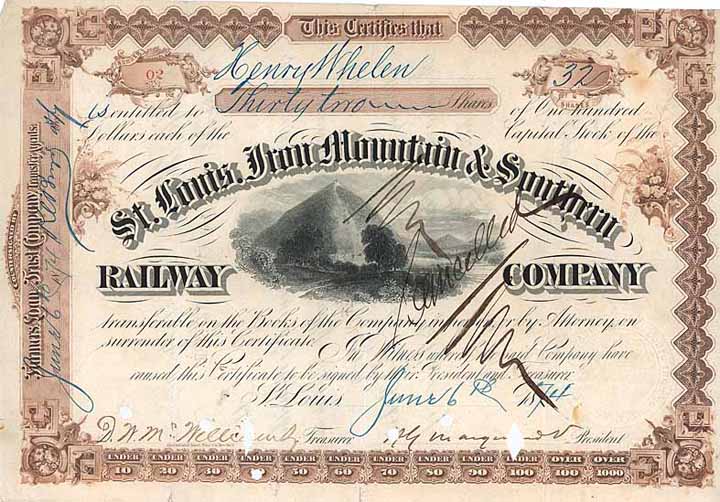 This Certifies that
02
Henry Whelen
32
SHARES
Thirty two Shares
is entitled to
of One Hundred
Dollars each of the
Capital Stock of the
St. Louis, Iron Mountain & Southern
RAILWAY COMPANY
Cancelled
transferable on the Books of the Company in or by Attorney, on
surrender of this Certificate.
In Witness whereof said Company have
caused this Certificate to be signed by their President and Treasurer
St. Louis June 6th 1874
D. W. Mc Treasurer President
Farmers Loan & Trust Company, Transfer Agents.
June 6th
UNDER 10 UNDER 20 UNDER 30 UNDER 50 UNDER 60 UNDER 70 UNDER 80 UNDER 90 UNDER 100 OVER 100 OVER 1000